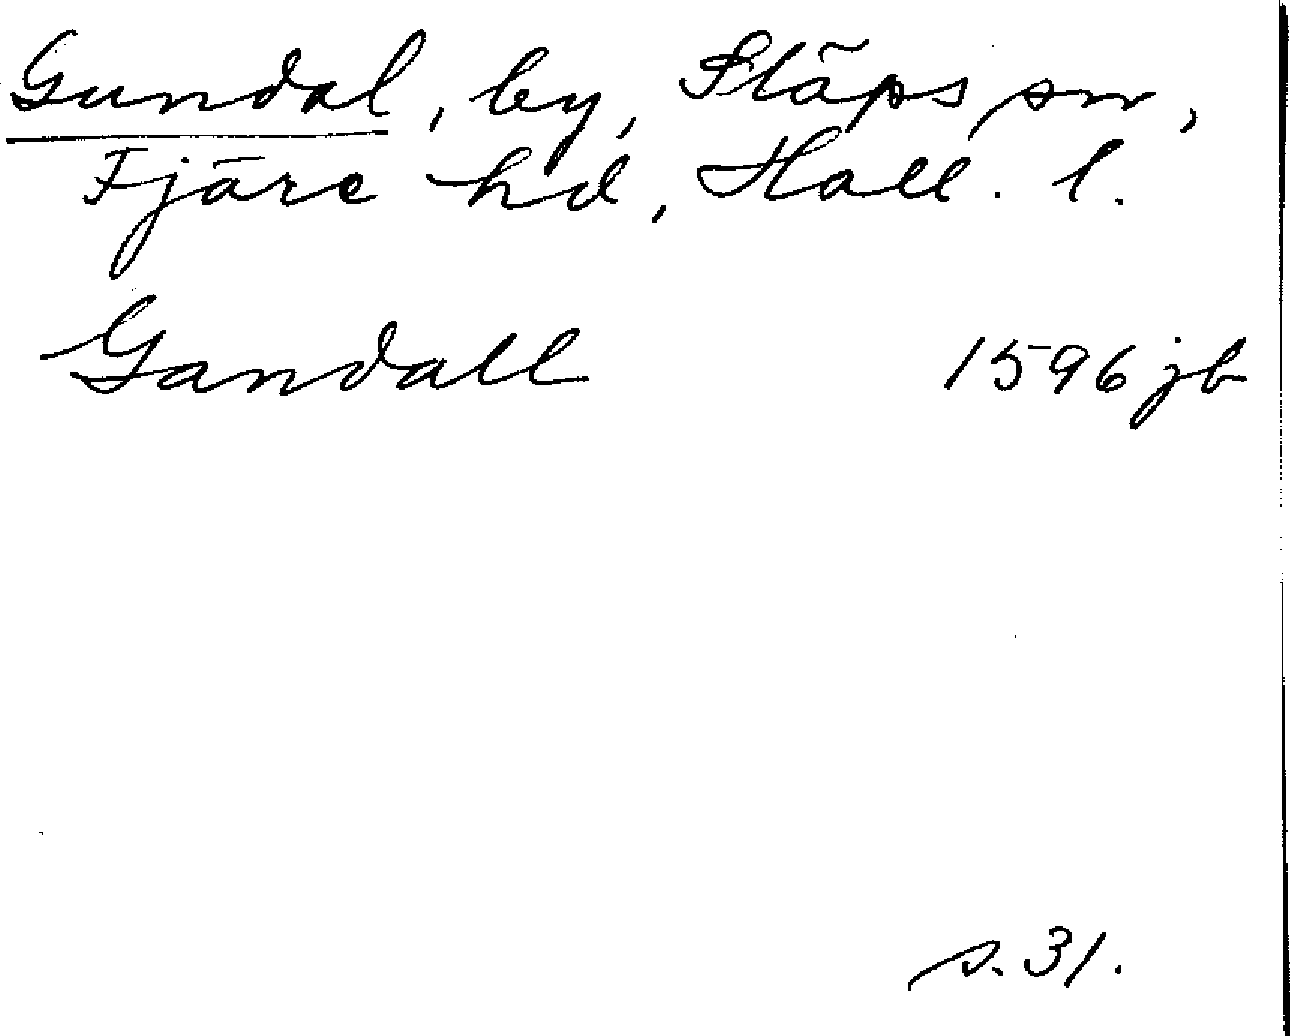 Gundal, by, Släps sn,
Fjäre hd, Hall. l.
Gandall 1596 jb
s. 31.